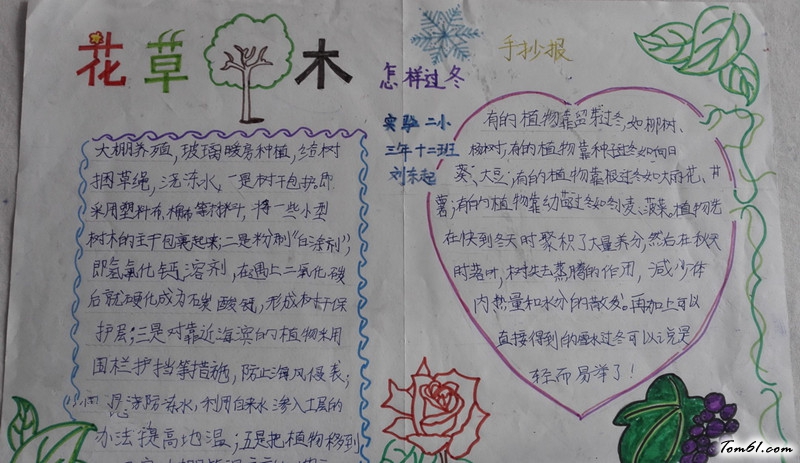 花草 木
怎样过冬
手抄报
实验二小
三年十二班
刘东起
大棚养殖,玻璃暖房种植,给树
捆草绳,浇冻水,一是树干包护。即
采用塑料布,棉布等材料,将一些小型
树木的主干包裹起来;二是粉刷“白涂剂”,
即氢氧化钙溶剂,在遇上二氧化碳
后就硬化成为碳酸钙,形成树干保
护层;三是对靠近海滨的植物采用
围栏护挡等措施,防止海风侵袭;
浇防冻水,利用自来水渗入土层的
办法提高地温;五是把植物移到
有的植物靠留芽过冬,如柳树、
杨树,有的植物靠种过冬如向日
葵、大豆;有的植物靠根过冬如大丽花、甘
薯;有的植物靠幼苗过冬如冬麦、菠菜。植物先
在快到冬天时聚积了大量养分,然后在秋天
时落叶,树失去蒸腾的作用,减少体
内热量和水分的散发。再加上可以
直接得到的雪水过冬可以说是
轻而易举了!
Tom61.com